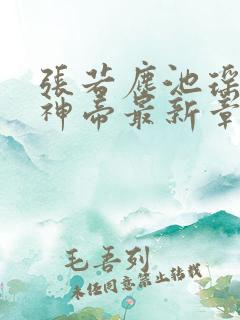 張若塵池瑤
神帝最新章
毛吾列
未经同意禁止转载